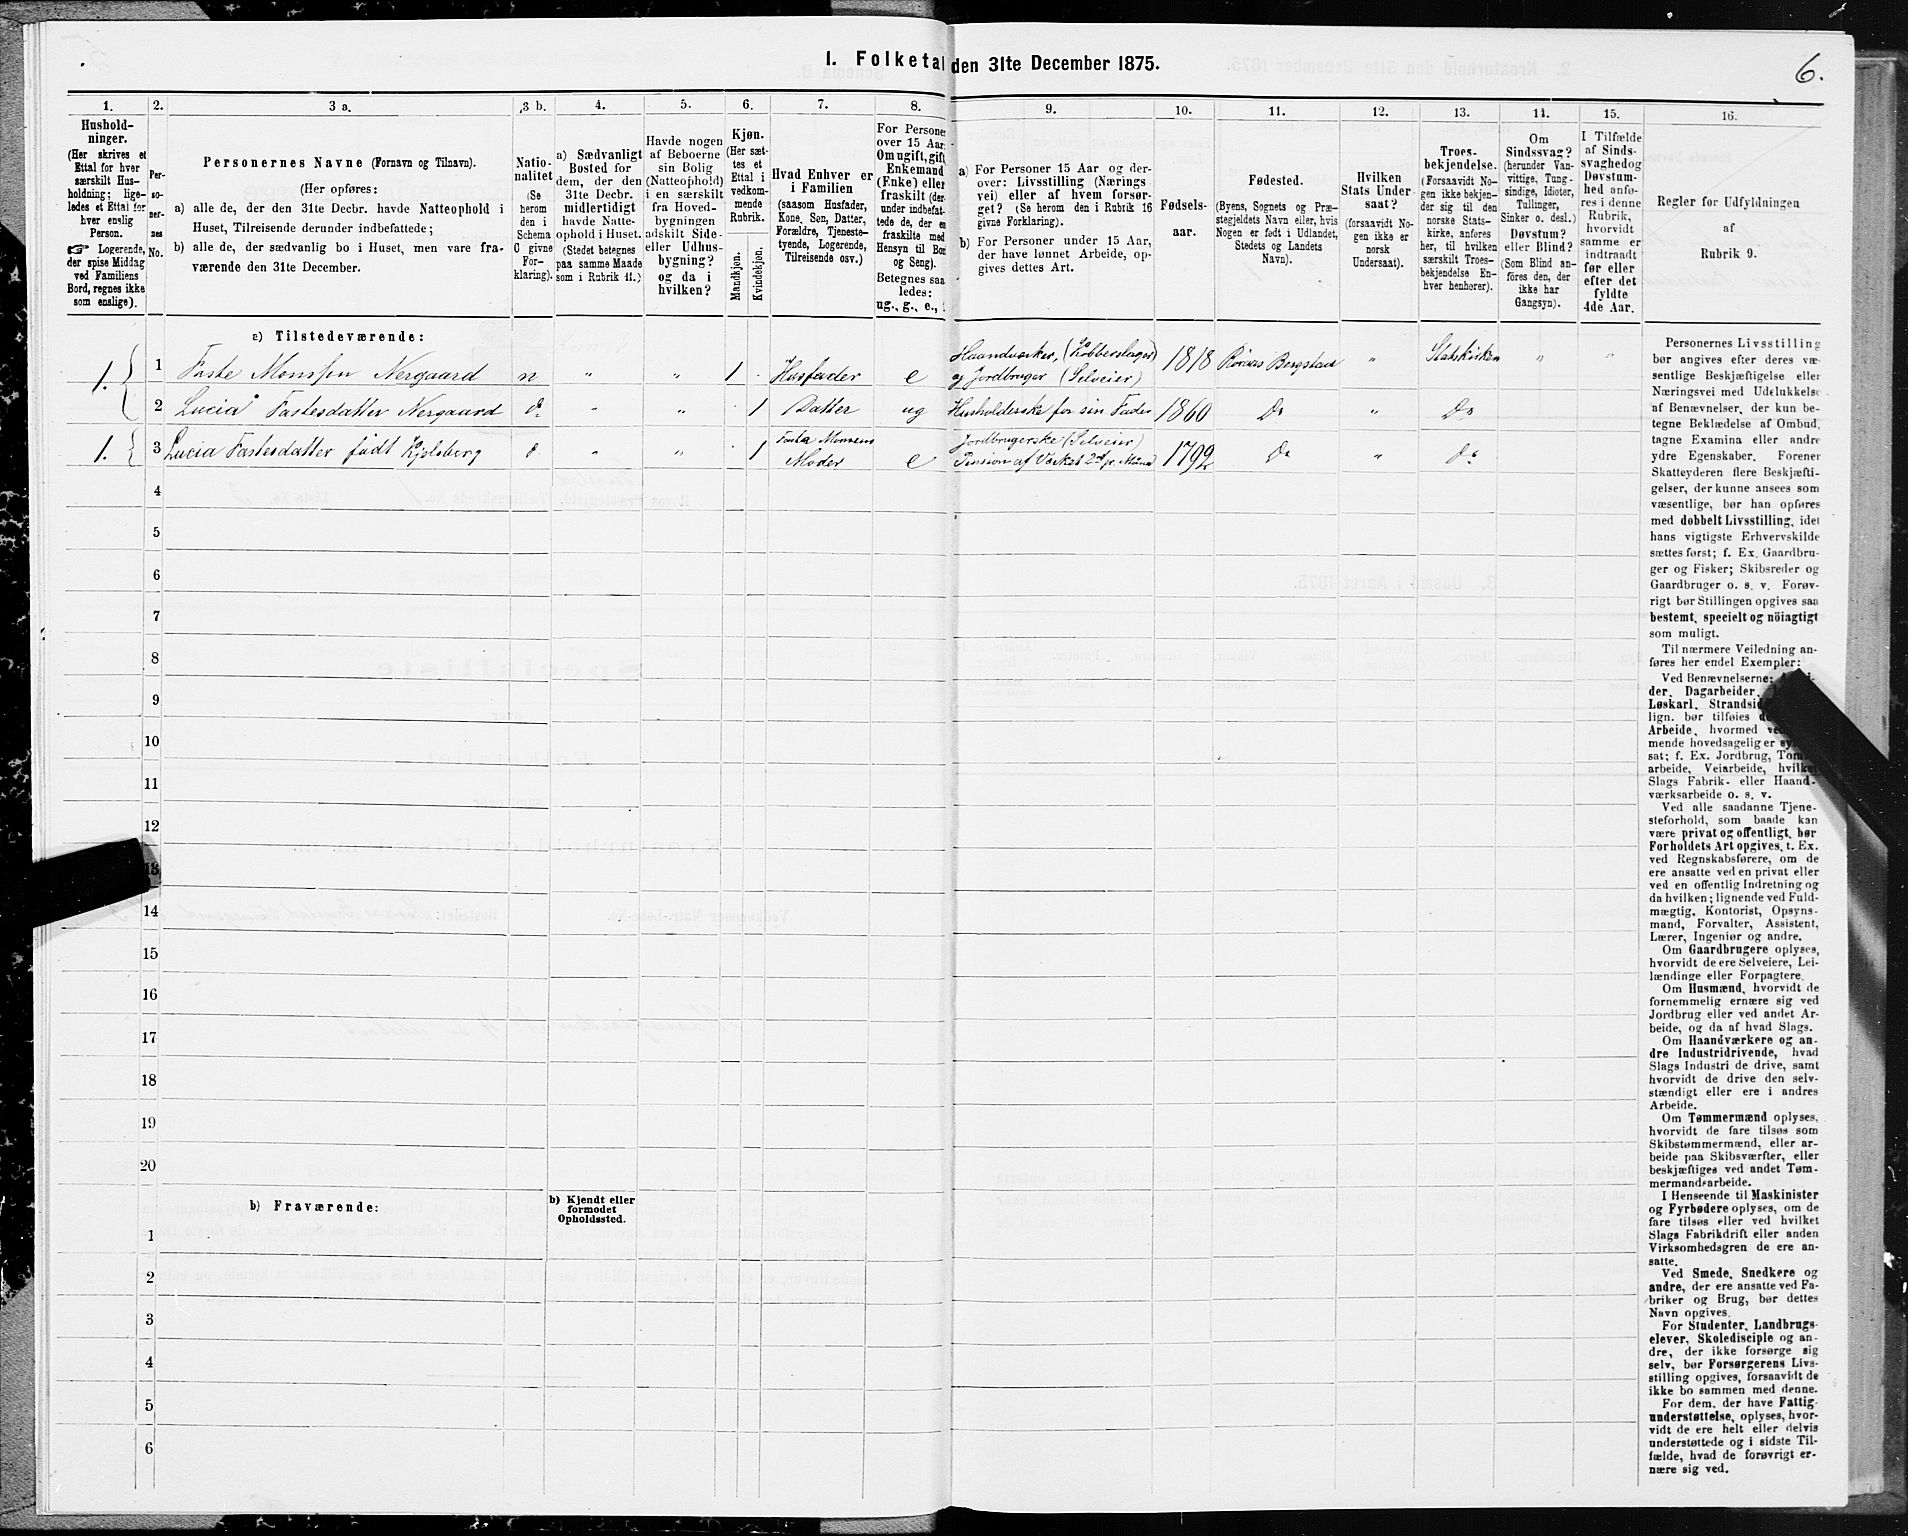 1. Folketal den 31te December 1875.
6.
1.
2.
3 a.
3 b.
4.
5.
6.
7.
8.
9.
10.
11.
12.
13.
14.
15.
16.
Hushold-
ninger.
(Her skrives et
Ettal for hver
særskilt Hus-
holdning; lige-
ledes et Ettal for
hver enslig
Person.
☞ Logerende,
der spise Middag
ved Familiens
Bord, regnes ikke
som enslige).
Per-
so-
ner-
nes
No.
Personernes Navne (Fornavn og Tilnavn).
(Her opføres:
a) alle de, der den 31te Decbr. havde Natteophold i
Huset, Tilreisende derunder indbefattede;
b) alle de, der sædvanlig bo i Huset, men vare fra-
værende den 31te December.
Natio-
nalitet
(Se
herom
den i
Schema
C givne
For-
klaring).
a) Sædvanligt
Bosted for
dem, der den
31te Decbr.
midlertidigt
havde Natte-
ophold i Huset.
(Stedet betegnes
paa samme Maade
som i Rubrik 11.)
Havde nogen
af Beboerne
sin Bolig
(Natteophold)
i en særskilt
fra Hoved-
bygningen
adskilt Side-
eller Udhus-
bygning?
og da i
hvilken?
Kjøn.
(Her sæt-
tes et
Ettal i
vedkom-
mende
Rubrik.
Mandkjøn.
Kvindekjøn.
Hvad Enhver er
i Familien
(saasom Husfader,
Kone, Søn, Datter,
Forældre, Tjeneste-
tyende, Logerende,
Tilreisende osv.)
For Personer
over 15 Aar:
Om ugift, gift,
Enkemand
(Enke) eller
fraskilt (der-
under indbefat-
tede de, der e
fraskilte med
Hensyn til Bo
og Seng).
Betegnes saa-
ledes:
ug., g., e.,
a) For Personer 15 Aar og der-
over: Livsstilling (Nærings
vei) eller af hvem forsør-
get? (Se herom den i Rubrik 16
givne Forklaring).
b) For Personer under 15 Aar,
der have lønnet Arbeide, op-
gives dettes Art.
Fødsels-
aar.
Fødested.
(Byens, Sognets og Præ-
stegjeldets Navn eller, hvis
Nogen er født i Udlandet,
Stedets og Landets
Navn).
Hvilken
Stats Under-
saat?
(forsaavidt No-
gen ikke er
norsk
Undersaat).
Troes-
bekjendelse.
(Forsaavidt No-
gen ikke bekjen-
der sig til den
norske Stats-
kirke, anføres
her, til hvilken
særskilt Troes-
bekjendelse En-
hver henhører).
Om
Sindssvag?
(herunder Van-
vittige, Tung-
sindige, Idioter,
Tullinger,
Sinker o. desl.)
Døvstum?
eller Blind?
(Som Blind an-
føres den, der
ikke har
Gangsyn).
I Tilfælde
af Sinds-
svaghedog
Døvstum-
hed anfø-
res i denne
Rubrik,
hvorvidt
samme er
indtraadt
før eller
efter det
fyldte
4de Aar.
Regler for Udfyldningen
af
Rubrik 9.
a) Tilstedeværende:
1. 1 Faste Monssen Nergaard n " " 1 . Husfader e Haandværker, (Kobberslager)
og Jordbruger (Selveier) 1818 Røraas Bergstad " Statskirken " "
2 Lucia Fastesdatter Nergaard do " " . 1 Datter ug Husholderske for sin Fader 1860 Do " Do
1. 3 Lucia Fastesdatter født Kjelsberg d " " . 1 Faste Monsens
Moder e Jordbrugerske (Selveier)
Pension af Værket 2 d pr. Maaned 1792 Do " do
4
5
6
7
8
9
10
11
12
13
14
15
16
17
18
19
20
b) Fraværende:
b) Kjendt eller
formodet
Opholdssted.
1
2
3
4
5
6
Personernes Livsstilling
bør angives efter deres væ-
sentlige Beskjæftigelse eller
Næringsvei med Udelukkelse
af Benævnelser, der kun be-
tegne Beklædelse af Ombud,
tagne Examina eller andre
ydre Egenskaber. Forener
Skatteyderen flere Beskjæfti-
gelser, der kunne ansees som
væsentlige, bør han opføres
med dobbelt Livsstilling, idet
hans vigtigste Erhvervskilde
sættes først; f. Ex. Gaardbru-
ger og Fisker; Skibsreder og
Gaardbruger o. s. v. Forøv-
rigt bør Stillingen opgives saa
bestemt, specielt og nöiagtigt
som muligt.
Til nærmere Veiledning an-
føres her endel Exempler:
Ved Benævnelserne:
der, Dagarbeider,
Løskarl, Strandsid
lign. bør tilføies
Arbeide, hvormed
mende hovedsagelig er
sat; f. Ex. Jordbrug, Tom
arbeide, Veiarbeide, hvilket
Slags Fabrik- eller Haand-
værksarbeide o. s. v.
Ved alle saadanne Tjene-
steforhold, som baade kan
være privat og offentligt, bør
Forholdets Art opgives, t. Ex.
ved Regnskabsførere, om de
ere ansatte ved en privat eller
ved en offentlig Indretning og
da hvilken; lignende ved Fuld-
mægtig, Kontorist, Opsyns-
mand, Forvalter, Assistent,
Lærer, Ingeniør og andre.
Om Gaardbrugere oplyses,
hvorvidt de ere Selveiere, Lei-
lændinge eller Forpagtere.
Om Husmænd, hvorvidt de
fornemmelig ernære sig ved
Jordbrug eller ved andet Ar-
beide, og da af hvad Slags.
Om Haandværkere og an-
dre Industridrivende, hvad
Slags Industri de drive, samt
hvorvidt de drive den selv-
stændigt eller ere i andres
Arbeide.
Om Tømmermænd oplyses,
hvorvidt de fare tilsøs som
Skibstømmermænd, eller ar-
beide paa Skibsværfter, eller
beskjæftiges ved andet Tøm-
mermandsarbeide.
I Henseende til Maskinister
og Fyrbødere oplyses, om de
fare tilsøs eller ved hvilket
Slags Fabrikdrift eller anden
Virksomhedsgren de ere an-
satte.
Ved Smede, Snedkere og
andre, der ere ansatte ved Fa-
briker og Brug, bør dettes
Navn opgives.
For Studenter, Landbrugs-
elever, Skoledisciple og an-
dre, der ikke forsørge sig
selv, bør Forsørgerens Livs-
stilling opgives, forsaavidt de
ikke bo sammen med denne.
For dem, der have Fattig-
understøttelse, oplyses, hvor-
vidt de ere helt eller delvis
understøttede og i sidste Til-
fælde, hvad de forøvrigt er-
nære sig ved.